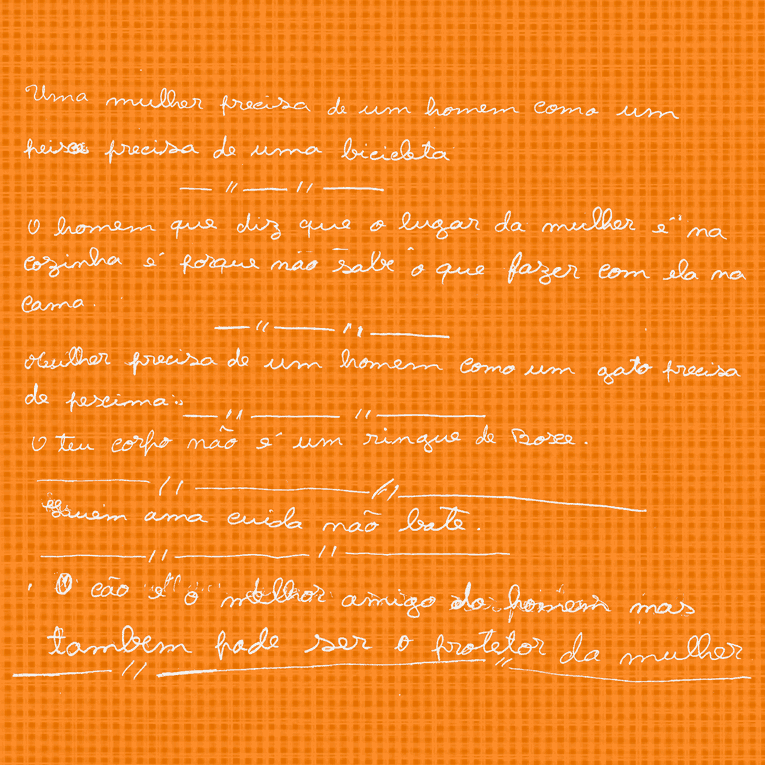 Uma mulher precisa de um homem como um
peixe precisa de uma bicicleta
O homem que diz que o lugar da mulher é na
cozinha é porque não sabe o que fazer com ela na
cama.
Mulher precisa de um homem como um gato precisa
de
O teu corpo não é um ringue de Boxe.
Quem ama cuida não bate.
O cão é o melhor amigo do homem mas
tambem pode ser o protetor da mulher